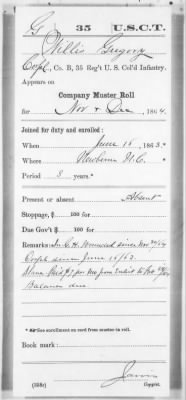 G 35 U.S.C.T.
Willis Gregory
Corpl, Co. B, 35 Reg't U. S. Col'd Infantry.
Appears on
Company Muster Roll
for Nov & Dec, 1864.
Joined for duty and enrolled:
When June 15, 1863.*
Where Newbern N.C.
Period 3 years.*
Present or absent Absent
Stoppage, $ 100 for
Due Gov't $ 100 for
Remarks: In G. H. wounded since Nov 30/64
Corpl since June 16/63.
Balance due
* See enrollment on card from muster-in roll.
Book mark:
(358c) Copyist.